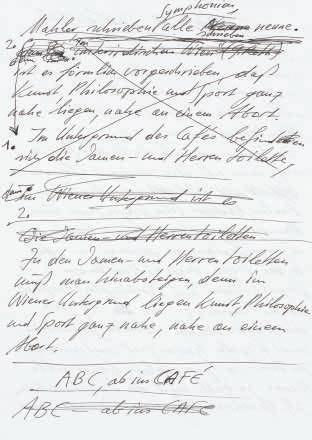 Symphonien,
Mahler schrieb alle neune.
schrieben
2. Im
unterirdischen Wien
ist es förmlich vorgeschrieben, daß
Kunst, Philosophie und Sport ganz
nahe liegen, nahe an einem Abort.
1. Im Untergrund des Cafés befinden
sich die Damen- und Herrentoilette,
Im Wiener Untergrund ist es
2.
Die Damen- und Herrentoiletten
Zu den Damen- und Herrentoiletten
muß man hinabsteigen, denn im
Wiener Untergrund liegen Kunst, Philosophie
und Sport ganz nahe, nahe an einem
Abort.
ABC, ab ins CAFÉ
ABC – ab ins CAFÉ